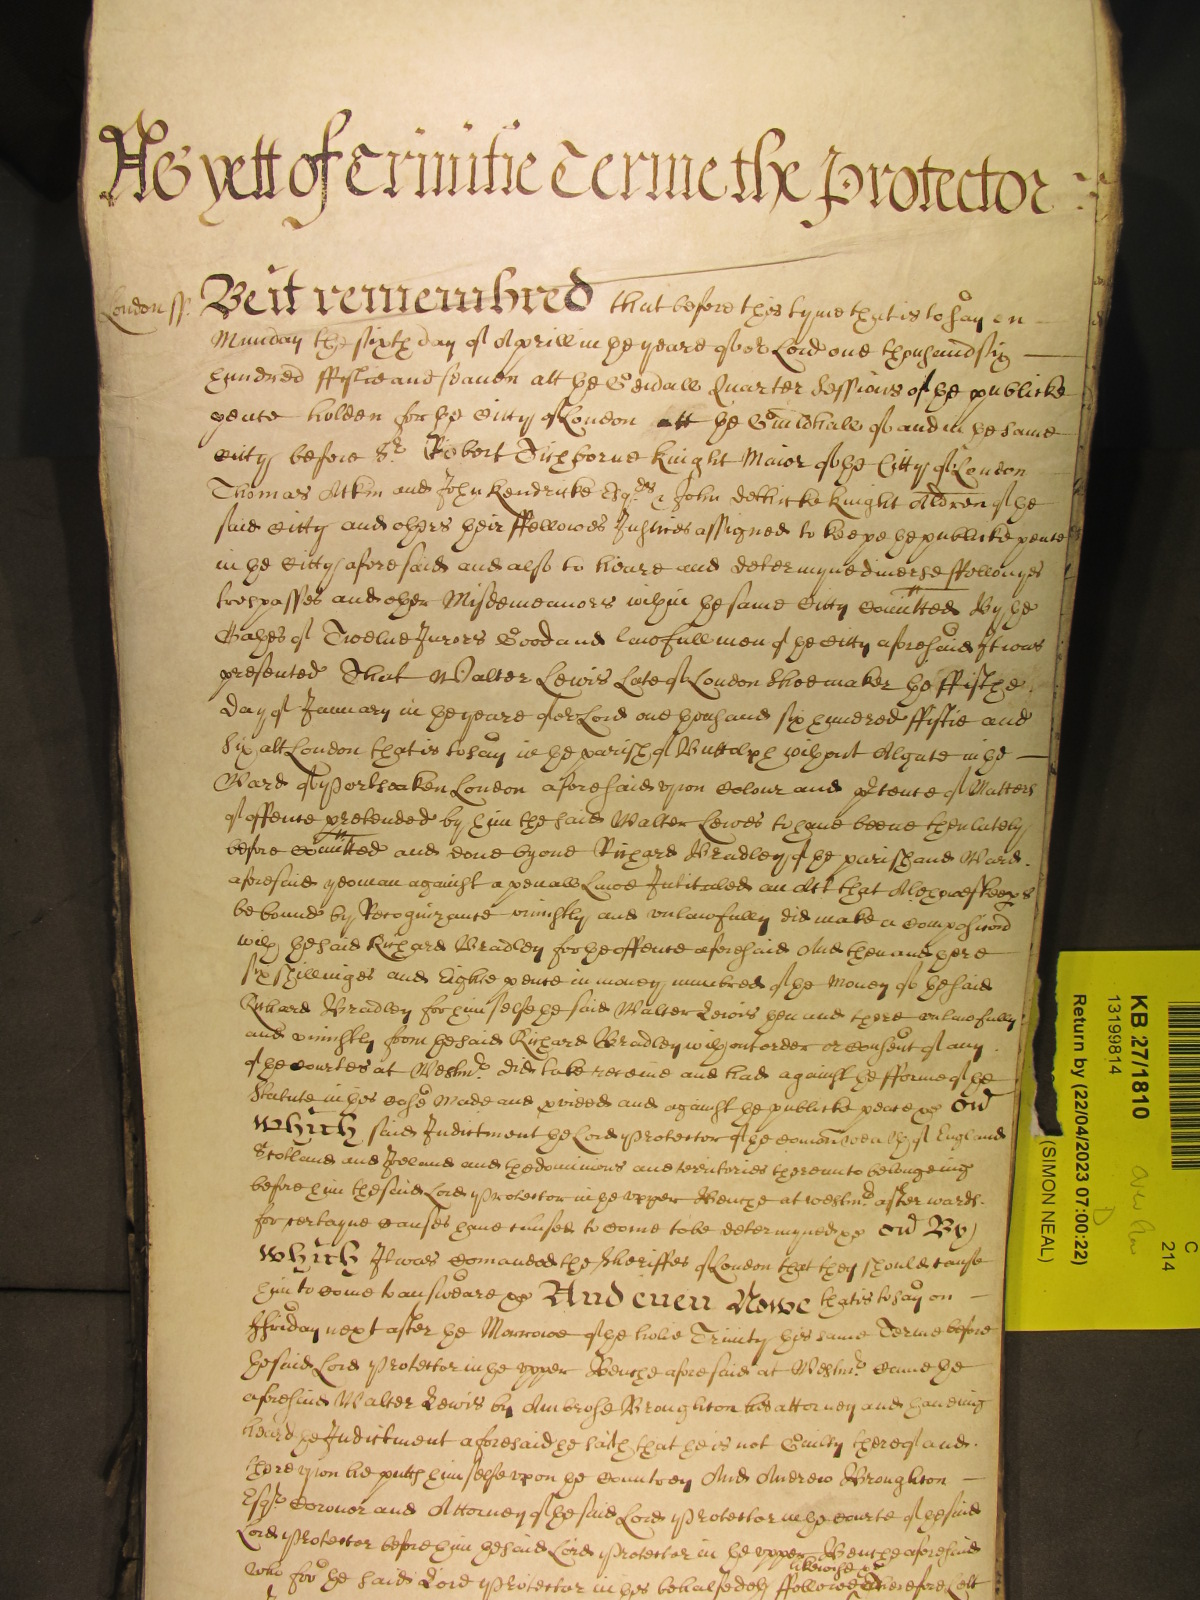 As yett of Trinitie Terme the Protector
London ss. Be it remembred that before this tyme that is to say on
Munday the sixth day of Aprill in the yeare of our Lord one thousand six
hundred ffyftie and seaven att the Gen'all Quarter Sessions of the publicke
peace holden for the Citty of London att the Guildhall of and in the same
Citty before Sr. Robert Tichborne Knight Maior of the Citty of London
Thomas Atkin and John Kendricke Esqrs & John Dethicke Knight Aldren of the
said Citty and others their ffellowes Justices assigned to keepe the publicke peace
in the Citty aforesaid and also to heare and determyne diverse ffellonyes
trespasses and other Misdemeanors within the same Citty comitted By the
Oathes of Twelve Jurors Good and lawfull men of the Citty aforesaid It was
presented That Walter Lewis Late of London Shoemaker the ffifthe
day of January in the yeare of our Lord one thousand six hundred ffiftie and
six att London that is to say in the parish of Buttolph without Algate in the
Ward of Portsoaken London aforesaid upon colour and p'tence of Matters
of offence pretended by him the said Walter Lewes to have beene then lately
before comitted and done by one Richard Bradley of the parish and Ward
aforesaid yeoman against a penall Lawe Intituled an Act that Alehouskeeps
be bound by Recognizance uniustly and unlawfully did make a composicon
with the said Richard Bradley for the offence aforesaid And then and there
six shillinges and Eighte pence in money numbred of the Money of the said
Richard Bradley for himselfe he said Walter Lewis then and there unlawfully
and uniustly from the said Richard Bradley without order or consent of any
of the Courtes at Westmr. did take receive and had against the fforme of the
Statute in this case made and provided and against the publicke peace &c
Which said Indictment the Lord Protector of the Comonwealth of England
Scotland and Ireland and the dominions and territories thereunto belongeing
before him the said Lord Protector in the upper Benche at Westmr. afterwards
for certayne causes have caused to come to be determyned &c By
Which It was comanded the Sheriffes of London that they should cause
him to come to answeare &c And even Nowe that is to say on
ffriday next after the Morrowe of the holie Trinity this same Terme before
the said Lord Protector in the upper Benche aforesaid at Westmr. came the
aforesaid Walter Lewis by Ambrose Broughton his attorney and haveing
heard the Indictment aforesaid he saith that he is not Guilty thereof and
thereupon he putts himselfe upon the Countrey And Andrew Broughton
Esqr. Coroner and Attorney of the said Lord Protector in the Courte of the said
Lord Protector before him the said Lord Protector in the upper Benche aforesaid
likewise &c
who for the said Lord Protector in this behalfe doth ffollowe Therefore Lett
KB 27/1810
1319814
Return by (22/04/2023 07:00:22)
(SIMON NEAL)
C
214